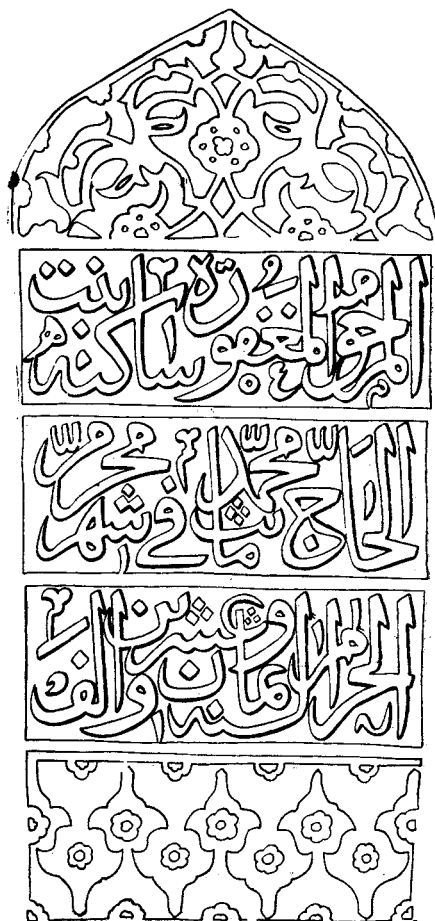 المرحومة المغفورة ساكنه بنت
الحاج محمد ماتت في شهر محرم
الحرام سنه ثمان وعشرين والف